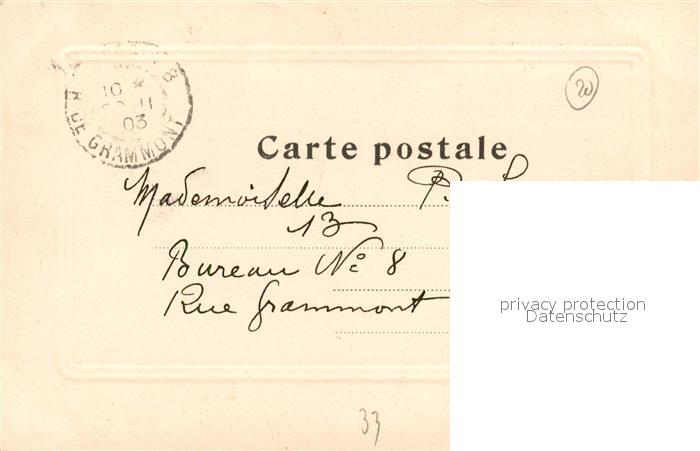 10 * 8
11
03
R. DE GRAMMONT
20
Carte postale
Mademoiselle P.
13
Bureau No 8
Rue Grammont
privacy protection
Datenschutz
33